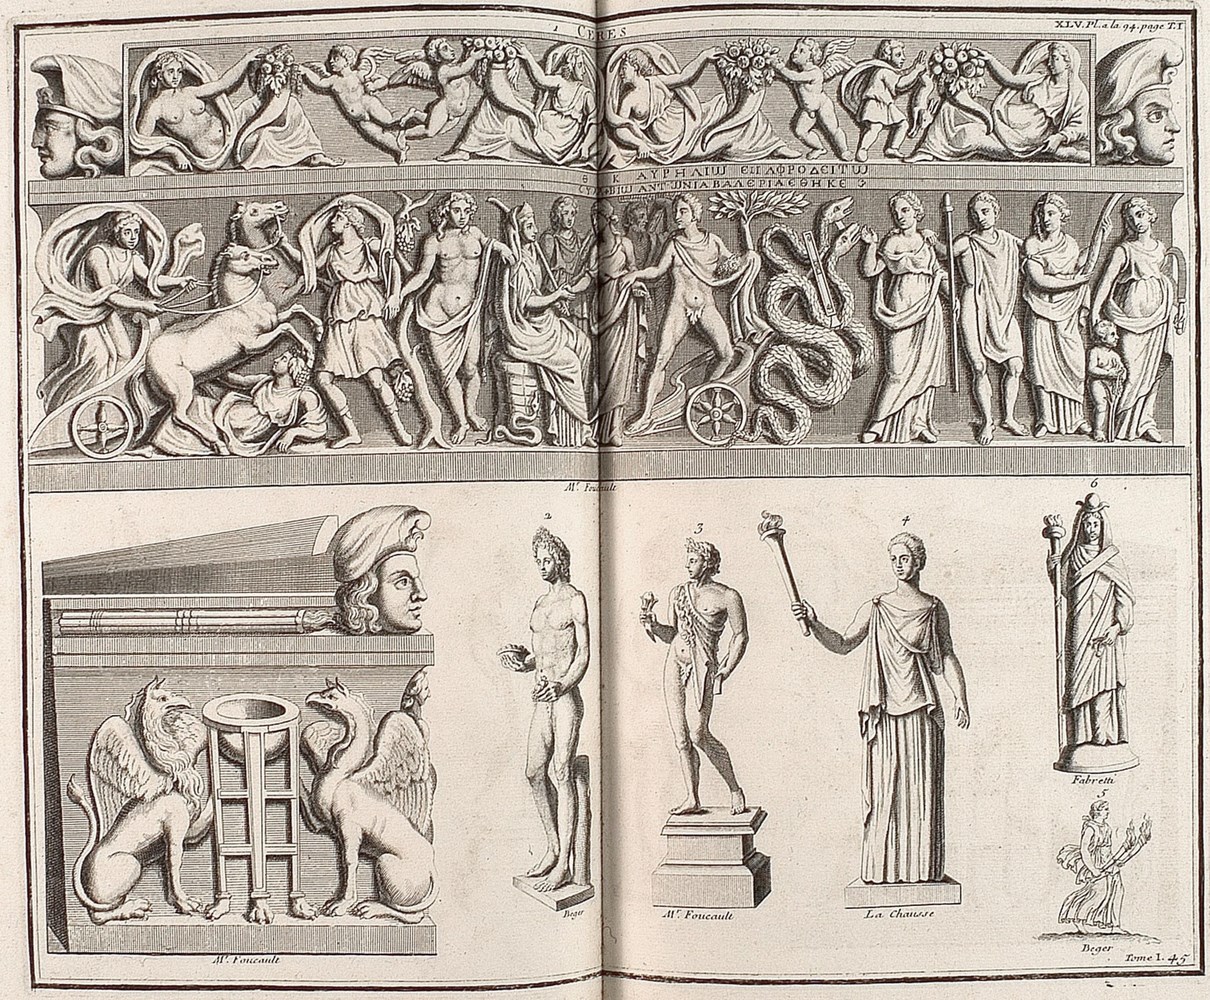 1 CERES
XLV. Pl. a la 94. page T. I
Θ Κ ΑΥΡΗΛΙѠ ΕΠΑΦΡΟΔΕΙΤѠ
ΑΝΤѠΝΙΑ ΒΑΛΕΡΙΑ ΕΘΗΚΕ
Mr. Foucault
2
3
4
6
Fabretti
5
Beger
Mr. Foucault
La Chausse
Beger
Mr. Foucault
Tome I. 45